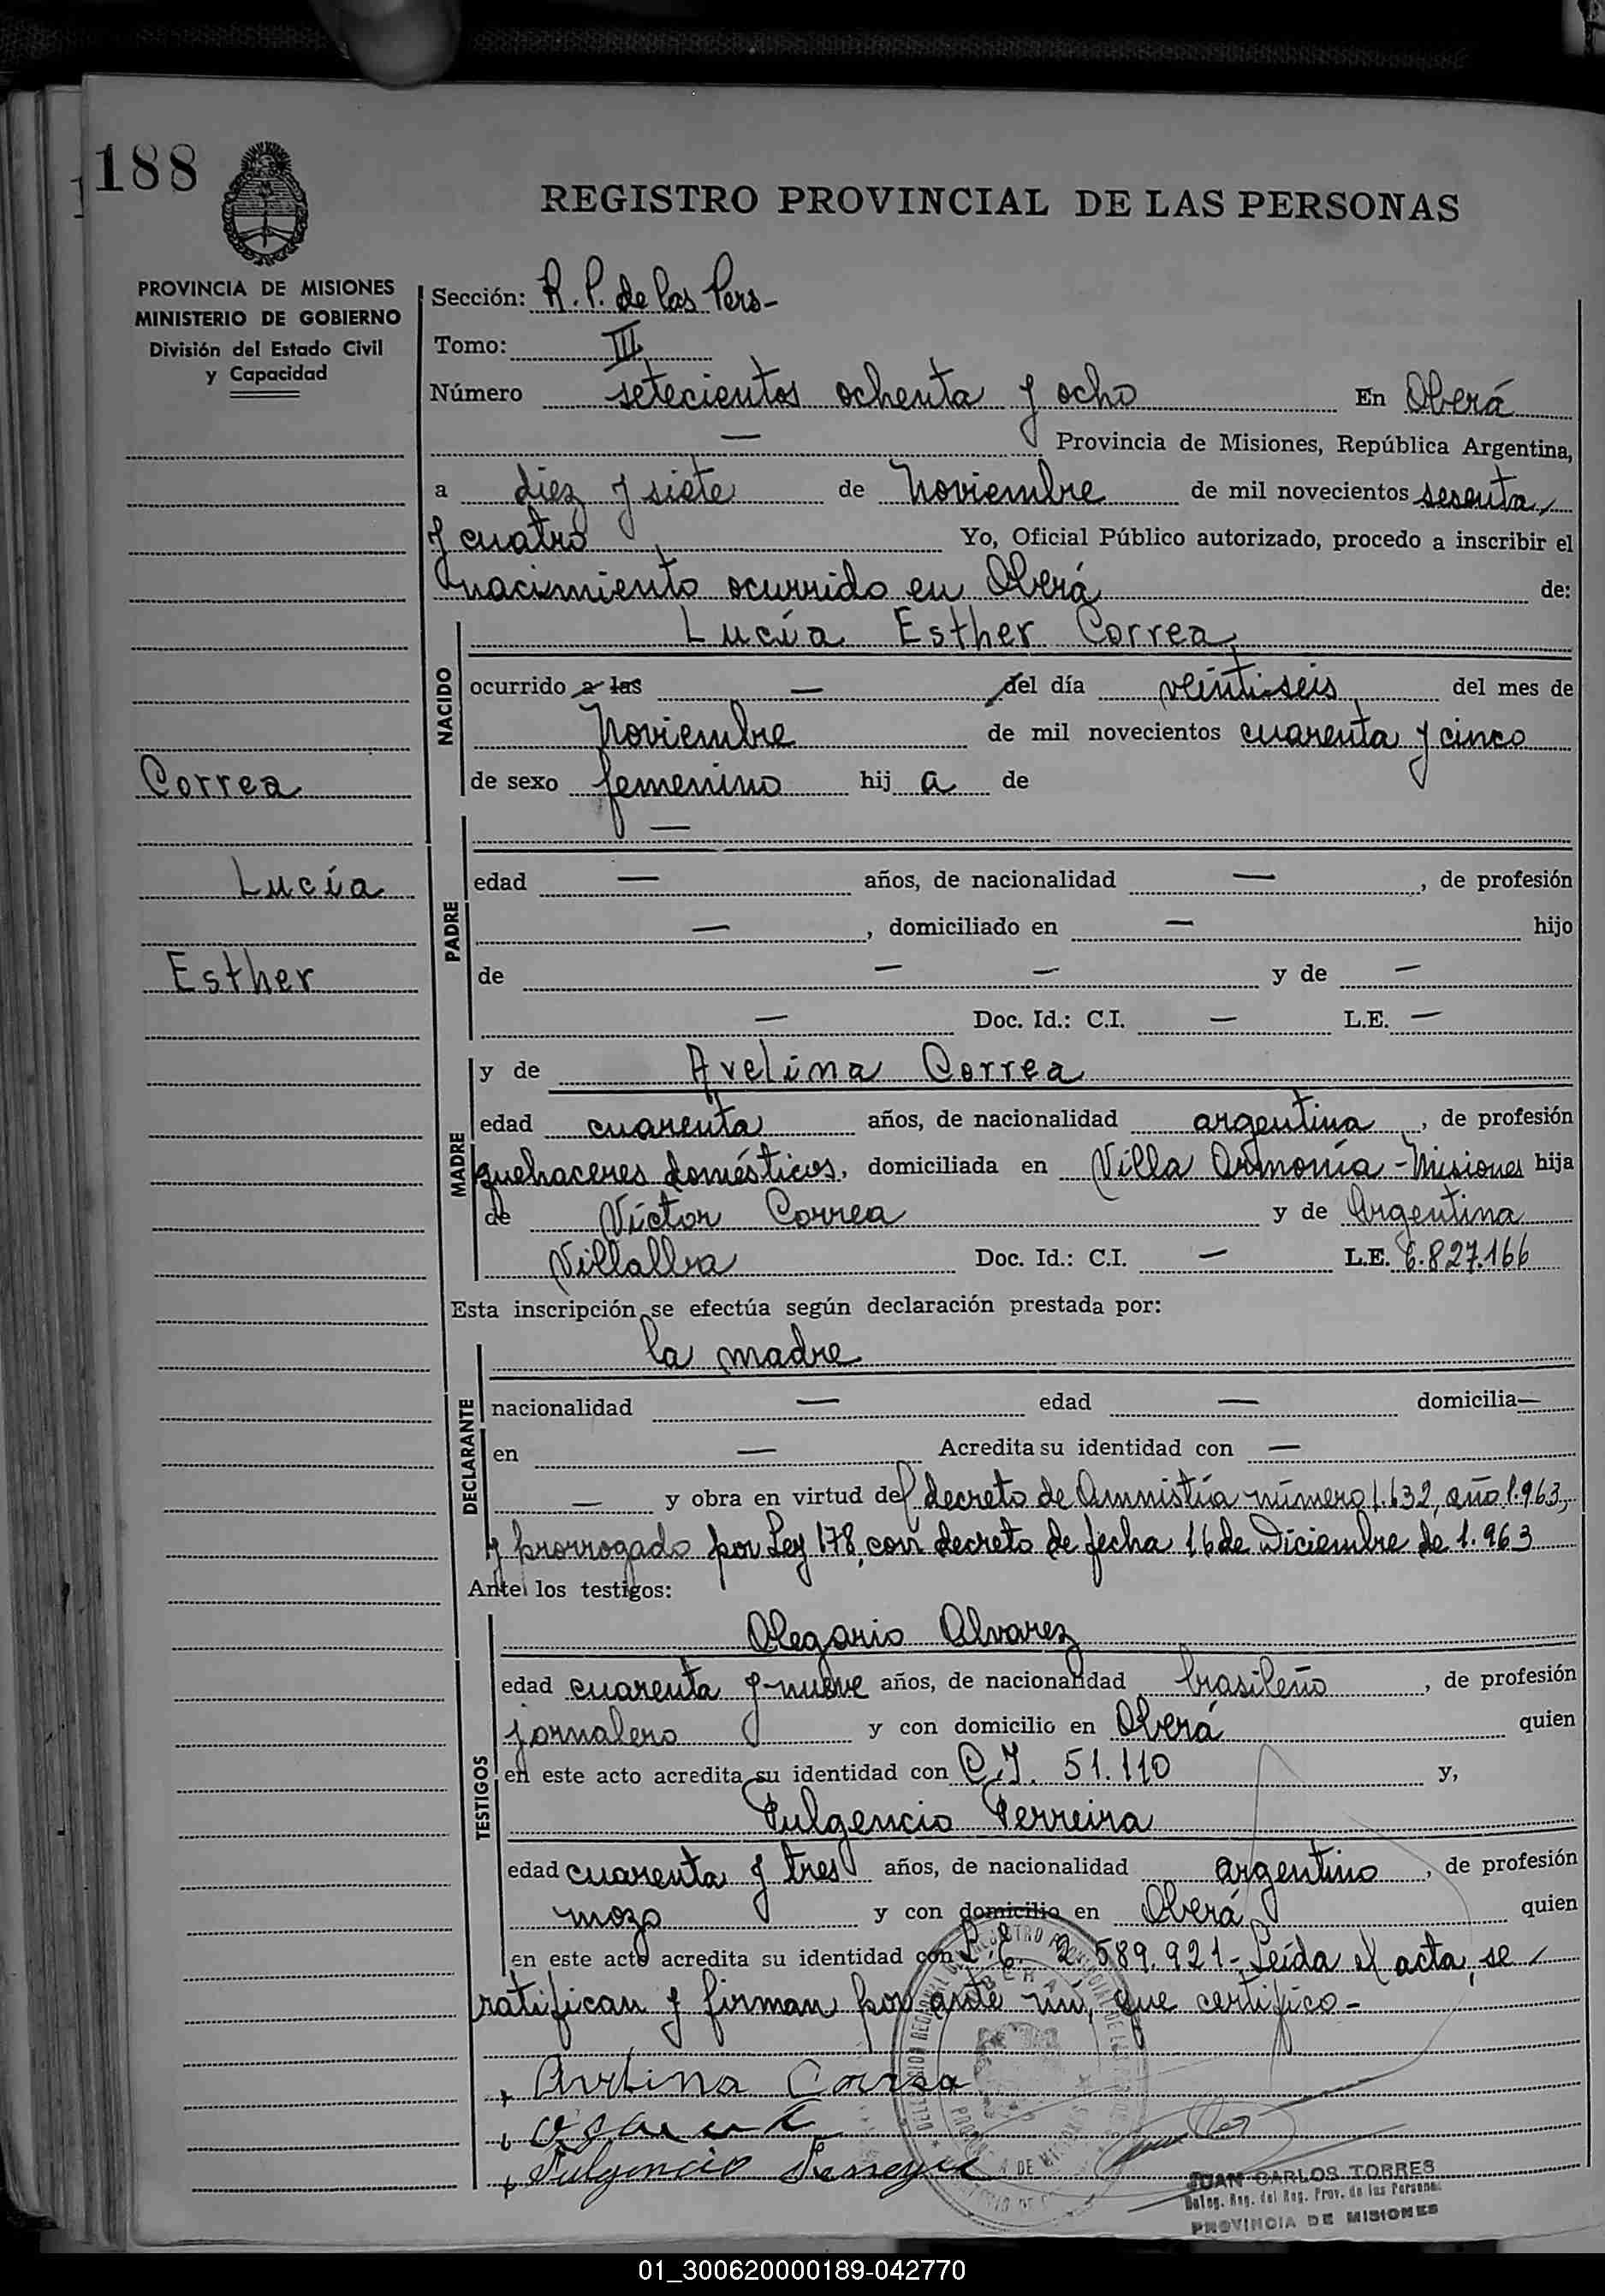 188
REGISTRO PROVINCIAL DE LAS PERSONAS
PROVINCIA DE MISIONES
MINISTERIO DE GOBIERNO
División del Estado Civil
y Capacidad
Correa
Lucía
Esther
Sección: R. P. de las Pers-
Tomo: III
Número setecientos ochenta y ocho En Oberá
— Provincia de Misiones, República Argentina,
a diez y siete de Noviembre de mil novecientos sesenta
y cuatro Yo, Oficial Público autorizado, procedo a inscribir el
nacimiento ocurrido en Oberá de:
NACIDO
Lucía Esther Correa
ocurrido a las — del día veintiseis del mes de
Noviembre de mil novecientos cuarenta y cinco
de sexo femenino hij a de
PADRE
—
edad — años, de nacionalidad — , de profesión
— , domiciliado en — hijo
de — — y de —
— Doc. Id.: C.I. — L.E. —
MADRE
y de Avelina Correa
edad cuarenta años, de nacionalidad argentina , de profesión
quehaceres domésticos, domiciliada en Villa Armonía - Misiones hija
de Víctor Correa y de Argentina
Villalba Doc. Id.: C.I. — L.E. 6.827.166
Esta inscripción se efectúa según declaración prestada por:
DECLARANTE
la madre
nacionalidad — edad — domicilia—
en — Acredita su identidad con —
— y obra en virtud del decreto de Amnistía número 1.632, año 1.963,
y prorrogado por Ley 178, con decreto de fecha 16 de Diciembre de 1.963
Ante los testigos:
TESTIGOS
Olegario Alvarez
edad cuarenta y nueve años, de nacionalidad brasileño , de profesión
jornalero y con domicilio en Oberá quien
en este acto acredita su identidad con C.I. 51.110 y,
Fulgencio Ferreira
edad cuarenta y tres años, de nacionalidad argentino , de profesión
mozo y con domicilio en Oberá quien
en este acto acredita su identidad con L.E. 2.589.921 - Leída el acta, se
ratifican y firman por ante mí, que certifico -
Avelina Correa
Fulgencio
JUAN CARLOS TORRES
Deleg. Reg. del Reg. Prov. de las Personas
PROVINCIA DE MISIONES
01_300620000189-042770